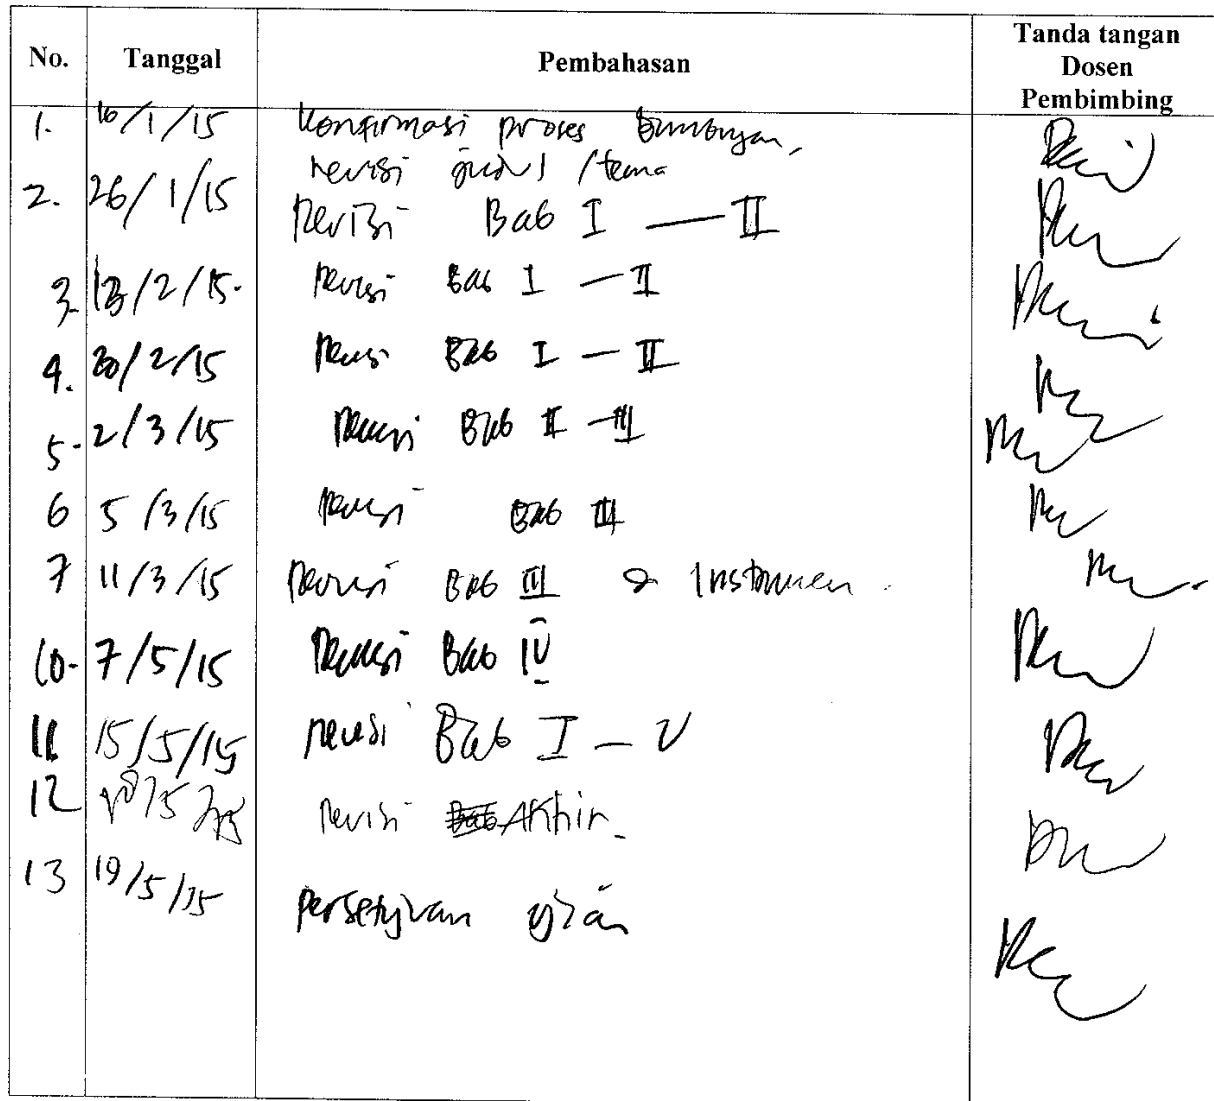 No. Tanggal Pembahasan Tanda tangan
Dosen
Pembimbing
1. 16/1/15 Konfirmasi proses bimbingan,
revisi judul / tema
2. 26/1/15 Revisi Bab I — II
3. 13/2/15. Revisi Bab I — II
4. 20/2/15 Revisi Bab I — II
5. 2/3/15 Revisi Bab II — III
6 5/3/15 Revisi Bab III
7 11/3/15 Revisi Bab III & Instrumen.
10. 7/5/15 Revisi Bab IV
11 15/5/15 revisi Bab I — V
12 revisi Akhir
13 19/5/15
Persetujuan ujian